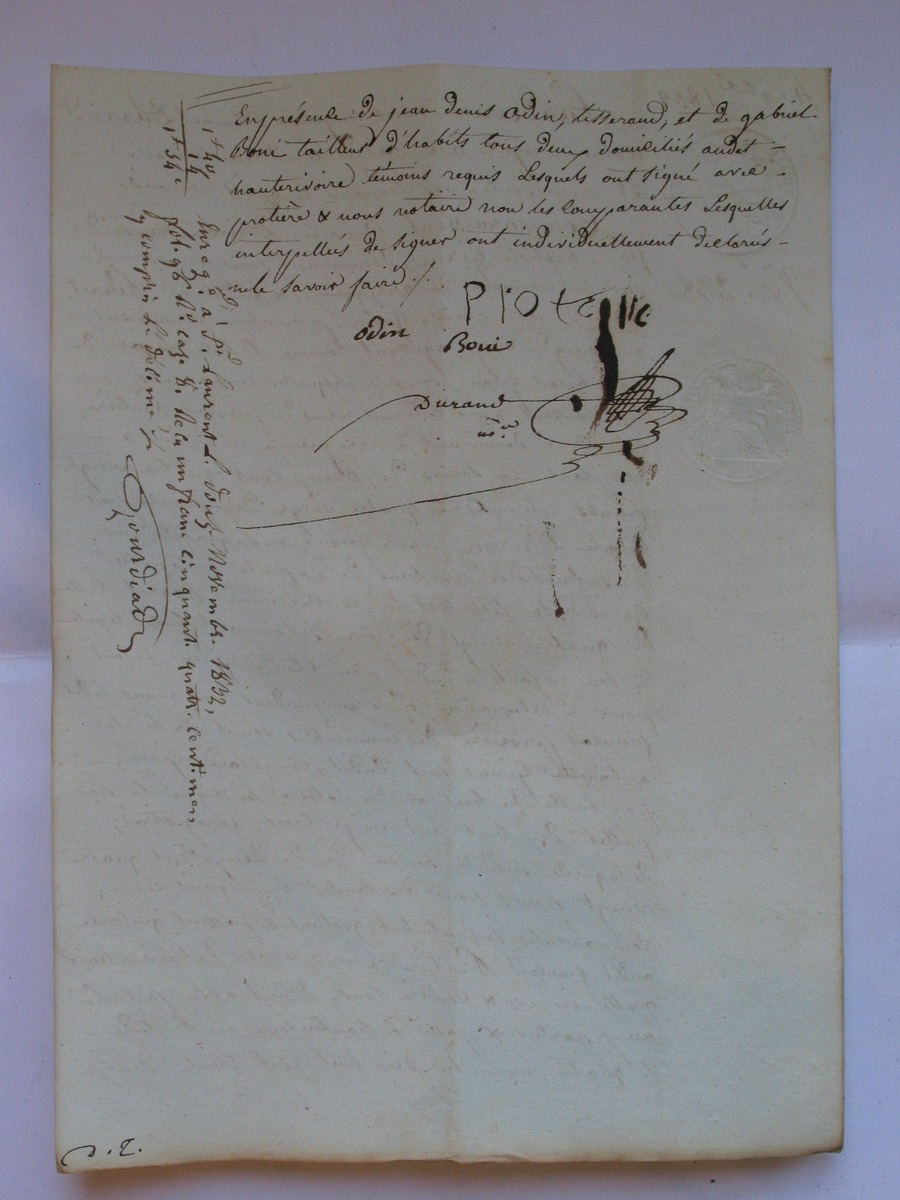 En présence de jean denis Odin, tisserand, et de gabriel
Boni tailleur d'habits tous deux domiciliés audit
hauterivoire témoins requis Lesquels ont signé avec
protière & nous notaire non les Comparantes Lesquelles
interpellées de signer ont individuellement déclarés
ne le savoir faire ./.
Odin
Boni
Durand
nre
1f 40
14
1f 54c
Enregé à St. Laurent L. douz. Novembr. 1832,
fol. 96 Ro. case 8. Reçu un franc cinquant. quatr. centimes,
y compris le décime ./.
D. T.